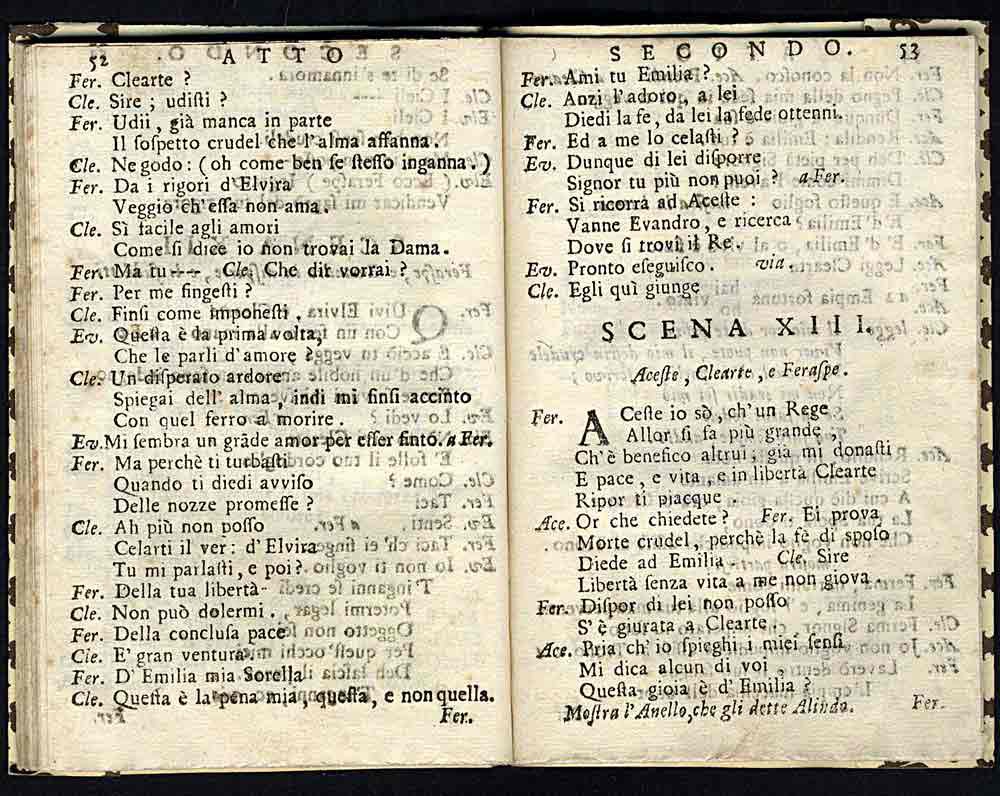 52 ATTO
Fer. Clearte ?
Cle. Sire ; udiſti ?
Fer. Udii, già manca in parte
Il ſoſpetto crudel che l'alma affanna.
Cle. Ne godo : ( oh come ben ſe ſteſſo inganna. )
Fer. Da i rigori d'Elvira
Veggio ch'eſſa non ama.
Cle. Sì facile agli amori
Come ſi dice io non trovai la Dama.
Fer. Ma tu --- , Cle. Che dir vorrai ?
Fer. Per me fingeſti ?
Cle. Finſi come imponeſti.
Ev. Queſta è la prima volta,
Che le parli d'amore ?
Cle. Un diſperato ardore
Spiegai dell' alma, indi mi finſi accinto
Con quel ferro a morire.
Ev. Mi ſembra un grāde amor per eſſer finto. a Fer.
Fer. Ma perchè ti turbaſti
Quando ti diedi avviſo
Delle nozze promeſſe ?
Cle. Ah più non poſſo
Celarti il ver : d'Elvira
Tu mi parlaſti, e poi ?
Fer. Della tua libertà-
Cle. Non può dolermi.
Fer. Della concluſa pace
Cle. E' gran ventura.
Fer. D' Emilia mia Sorella
Cle. Queſta è la pena mia, queſta, e non quella.
Fer.
SECONDO. 53
Fer. Ami tu Emilia ?
Cle. Anzi l'adoro, a lei
Diedi la fe, da lei la fede ottenni.
Fer. Ed a me lo celaſti ?
Ev. Dunque di lei diſporre
Signor tu più non puoi ? a Fer.
Fer. Si ricorra ad Aceſte :
Vanne Evandro, e ricerca
Dove ſi trovi il Re.
Ev. Pronto eſeguiſco. via.
Cle. Egli quì giunge
SCENA XIII.
Aceſte, Clearte, e Feraſpe.
Fer. ACeſte io sò, ch'un Rege
Allor ſi fa più grande,
Ch'è benefico altrui, già mi donaſti
E pace, e vita, e in libertà Clearte
Ripor ti piacque.
Ace. Or che chiedete ? Fer. Ei prova
Morte crudel, perchè la fè di ſpoſo
Diede ad Emilia. Cle. Sire
Libertà ſenza vita a me non giova.
Fer. Diſpor di lei non poſſo
S'è giurata a Clearte.
Ace. Pria, ch' io ſpieghi i miei ſenſi
Mi dica alcun di voi,
Queſta gioia è d' Emilia ?
Moſtra l'Anello, che gli dette Alindo.
Fer.